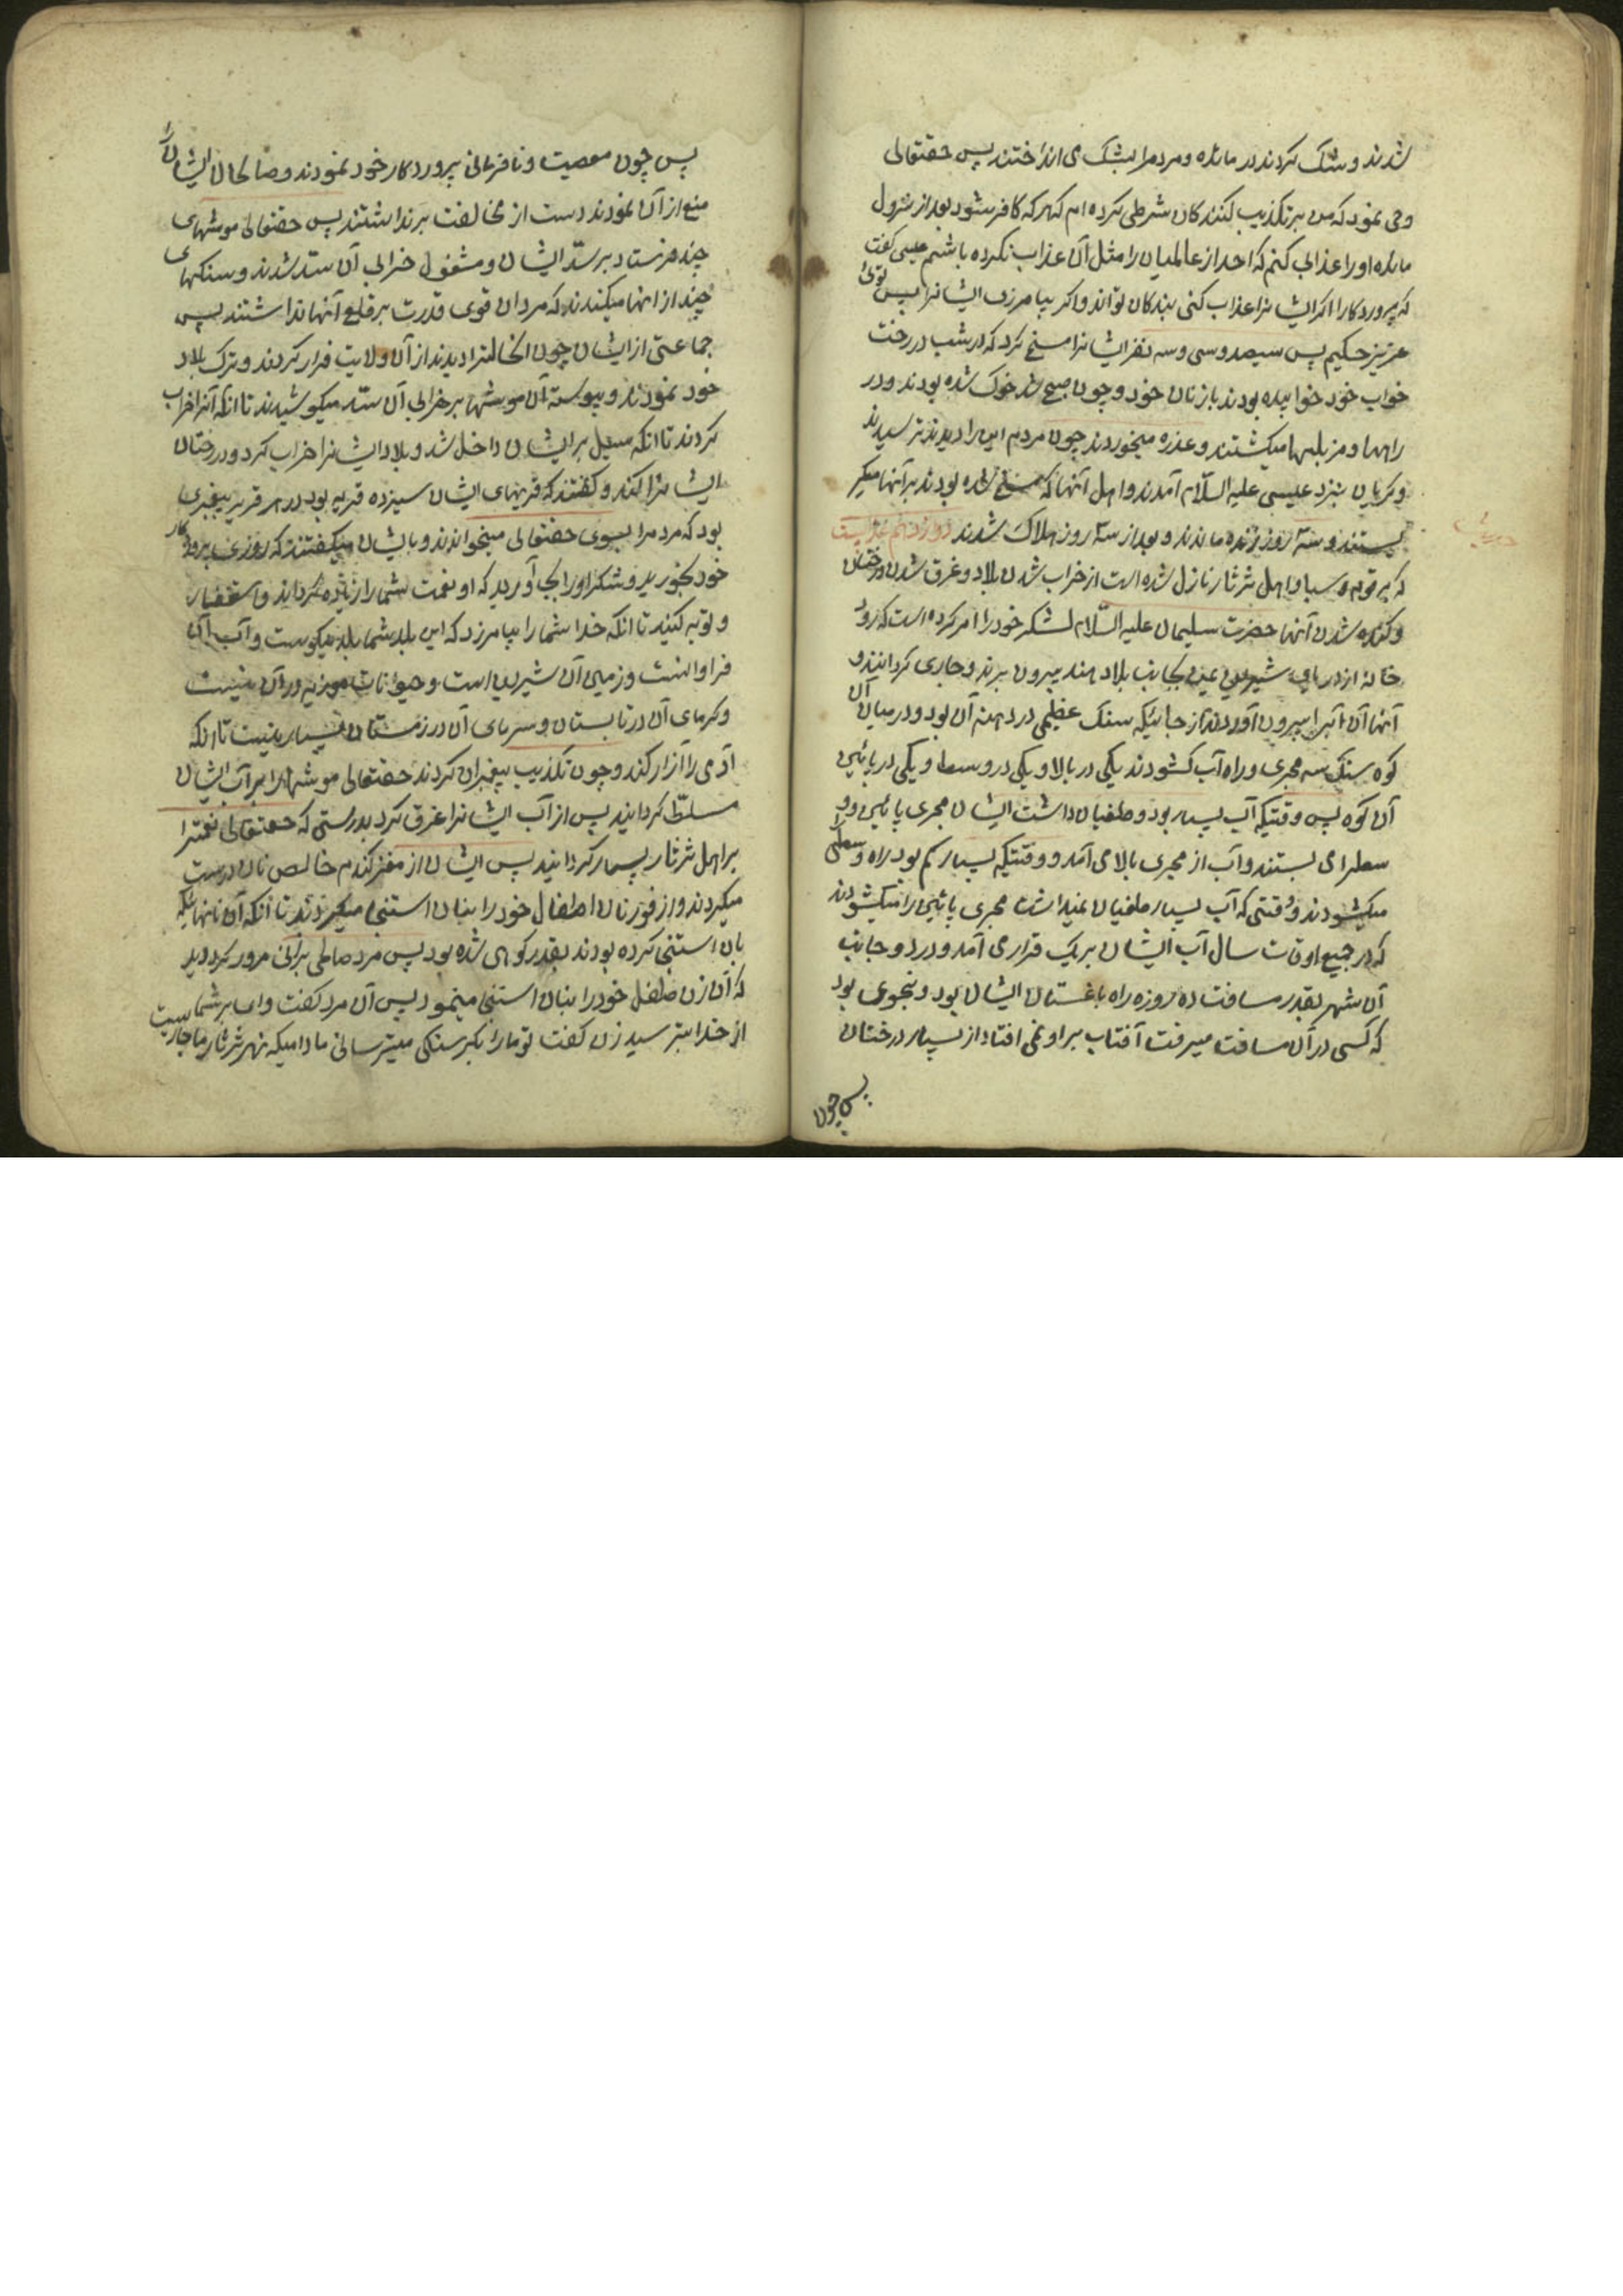 شدند و شک کردند در مائده و مردم را بشک می انداختند پس حقتعالی
وحی نمود که من بر تکذیب کنندکان شرطی کرده ام که هر که کافر شود بعد از نزول
مائده او را عذابی کنم که احد از عالمیان را مثل آن عذاب نکرده باشم عیسی کفت
که پروردکارا اکر ایشانرا عذاب کنی بندکان تواند و اکر بیامرزی ایشانرا پس توئی
عزیز حکیم پس سیصد و سی و سه نفر ایشانرا مسخ کرد که در شب در رخت
خواب خود خوابیده بودند با زنان خود و چون صبح شد خوک شده بودند و در
راهها و مزبلها میکشتند و عذره میخوردند چون مردم این را دیدند ترسیدند
و کریان بنزد عیسی علیه السّلام آمدند و اهل آنها که مسخ شده بودند بر آنها میکر
یستند و سه روز زنده ماندند و بعد از سه روز هلاک شدند دوازدهم عذابیست
که بر قوم سبا و اهل ثرثار نازل شده است از خراب شدن بلاد و غرق شدن درختان
و کنده شدن آنها حضرت سلیمان علیه السّلام لشکر خود را امر کرده است که رود
خانه از دریای شیرین بجانب بلاد هند بیرون برند و جاری کردانند و
آنها آن آبرا بیرون آوردند از جائیکه سنک عظیمی در دهنه آن بود و در میان آن
کوه سنک سه مجری و راه آب کشودند یکی در بالا و یکی در وسط و یکی در پائین
آن کوه پس وقتیکه آب بسیار بود و طغیان داشت ایشان مجری پائین و و
سطرا می بستند و آب از مجری بالا می آمد و وقتیکه بسیار کم بود راه وسطی
میکشودند و وقتی که آب بسیار طغیان نمیداشت مجری پائین را میکشودند
که در جمیع اوقات سال آب ایشان بر یک قرار می آمد و در دو جانب
آن شهر بقدر مسافت ده روزه راه باغستان ایشان بود و بنحوی بود
که کسی در آن مسافت میرفت آفتاب بر او نمی افتاد از بسیار درختان
پس چون
پس چون معصیت و نافرمانی پروردکار خود نمودند و صالحان ایشان را
منع از آن نمودند دست از مخالفت برنداشتند پس حقتعالی موشهای
چند فرستاد بر سدّ ایشان و مشغول خرابی آن سدّ شدند و سنکهای
چند از آنها میکندند که مردان قوی قدرت بر قلع آنها نداشتند پس
جماعتی از ایشان چون انحالترا دیدند از آن ولایت فرار کردند و ترک بلاد
خود نمودند و پیوسته آن موشها بر خرابی آن سدّ میکوشیدند تا انکه آنرا خراب
کردند تا انکه سیل بر ایشان داخل شد و بلاد ایشانرا خراب کرد و درختان
ایشانرا کند و کفتند که قریهای ایشان سیزده قریه بود در هر قریه پیغمبری
بود که مردم را بسوی حقتعالی میخواندند و بایشان میکفتند که روزی پروردکار
خود بخورید و شکر او را بجا آورید که او نعمت شما را زیاده کرداند و استغفار
و توبه کنید تا انکه خدا شما را بیامرزد که این بلد شما بلد نیکوست و آب آن
فراوانست و زمین آن شیرین است و حیوانات موذیه در آن نیست
و کرمای آن در تابستان و سرمای آن در زمستان بسیار نیست تا انکه
آدمی را آزار کند و چون تکذیب پیغمبران کردند حقتعالی موشهارا بر آب ایشان
مسلّط کردانید پس از آب ایشانرا غرق کرد بدرستی که حقتعالی نعمترا
بر اهل ثرثار بسیار کردانید پس ایشان از مغز کندم خالص نان درست
میکردند و از فور نان اطفال خود را بنان استنجا میکردند تا انکه آن نانهائیکه
بان استنجی کرده بودند بقدر کوهی شده بود پس مرد صالحی بر آنی مرور کرد دید
که آن زن طفل خود را بنان استنجی مینمود پس آن مرد کفت وای بر شما
از خدا بترسید زن کفت تو ما را بکرسنکی میترسانی مادامیکه نهر ثرثار ما جاریست